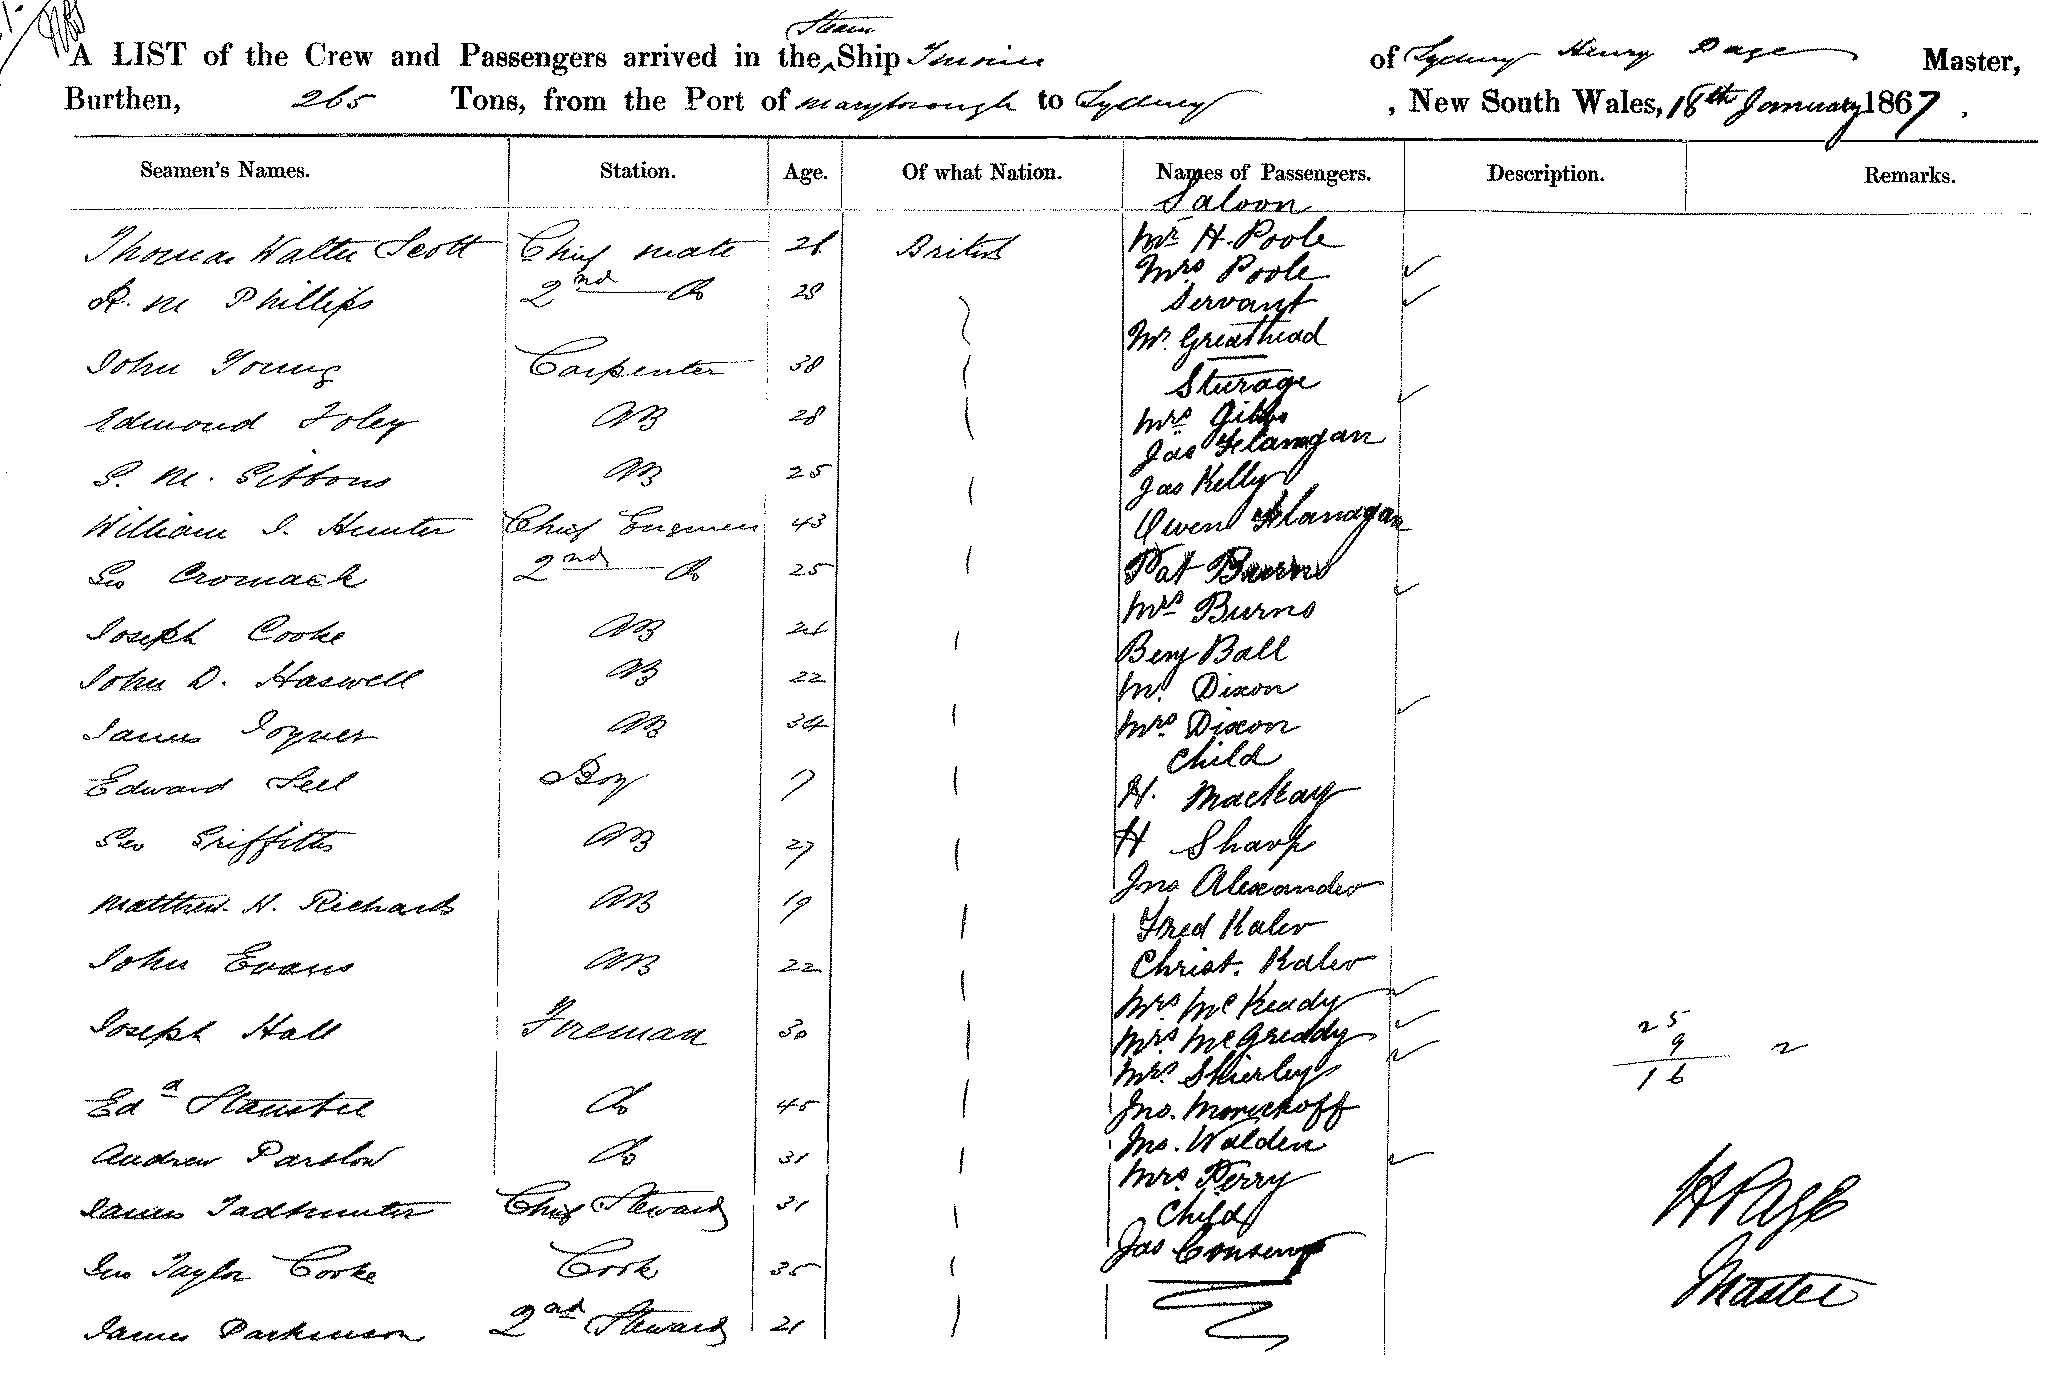 A LIST of the Crew and Passengers arrived in the Steam Ship of Sydney Henry Page Master,
Burthen, 265 Tons, from the Port of Maryborough to Sydney, New South Wales, 18th January 1867.
Seamen's Names. Station. Age. Of what Nation. Names of Passengers. Description. Remarks.
Saloon
Thomas Walter Scott Chief mate 26 British Mr H. Poole
Mrs Poole
R. M Phillips 2nd Do 28 Servant
Mr. Greathead
John Young Carpenter 38
Sturage
Edmond Foley AB 28 Mrs Gibbs
Jas Flanagan
S. M. Gibbons AB 25 Jas Kelly
William I. Hunter Chief Engineer 43 Owen Flanagan
Geo Cromack 2nd Do 25 Pat Burns
Mrs Burns
Joseph Cooke AB 21 Benj Ball
John D. Haswell AB 22 Mr. Dixon
James Joyner AB 34 Mrs Dixon
Child
Edward Sell Boy 17 H. MacKay
Geo Griffiths AB 27 H Sharp
Jno Alexander
Matthew H. Richards AB 19 Fred Kaler
John Evans AB 22 Christ. Kaler
Mrs McKeady
Joseph Hall Fireman 30 Mrs. McGreddy
25
9 2
16
Mrs. Shierley
Edd Do 45 Jno.
Jno. Walden
Andrew Parslow Do 31 Mrs Perry
James Tadhunter Chief Steward 31 Child
H Page
Jas
Jno Taylor Cooke Cook 35
Master
James Parkinson 2nd Steward 21